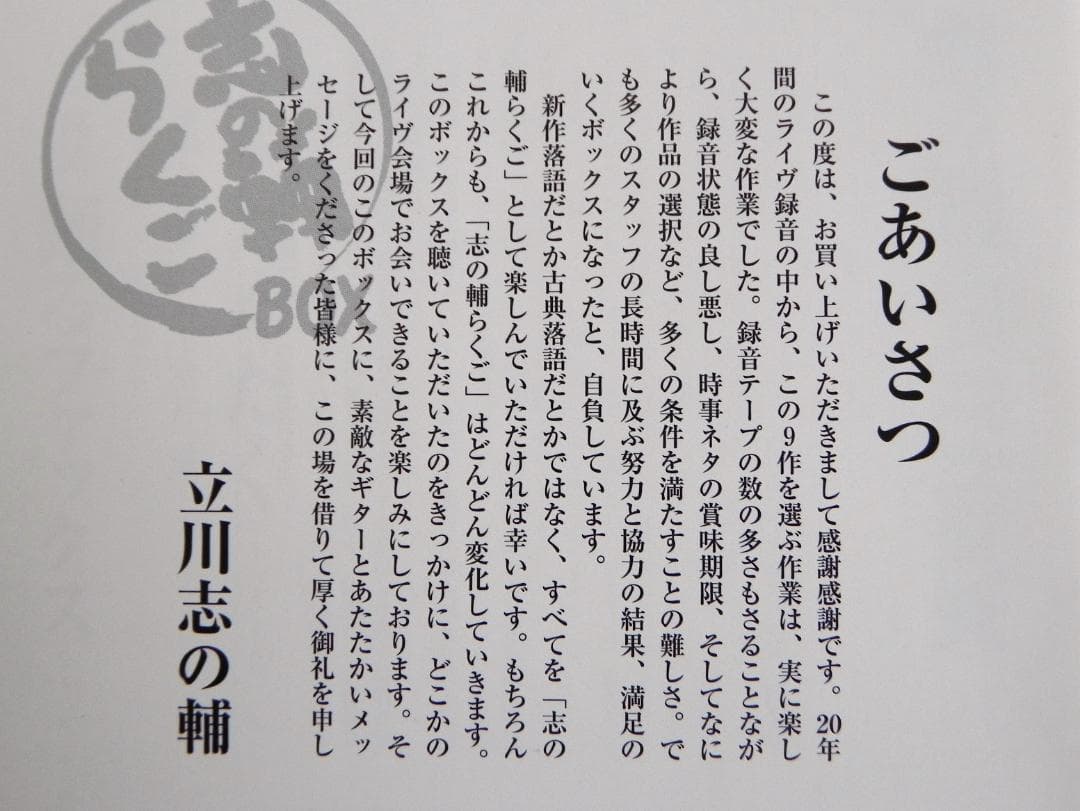 ごあいさつ
この度は、お買い上げいただきまして感謝感謝です。20年
間のライヴ録音の中から、この9作を選ぶ作業は、実に楽し
く大変な作業でした。録音テープの数の多さもさることなが
ら、録音状態の良し悪し、時事ネタの賞味期限、そしてなに
より作品の選択など、多くの条件を満たすことの難しさ。で
も多くのスタッフの長時間に及ぶ努力と協力の結果、満足の
いくボックスになったと、自負しています。
新作落語だとか古典落語だとかではなく、すべてを「志の
輔らくご」として楽しんでいただければ幸いです。もちろん
これからも、「志の輔らくご」はどんどん変化していきます。
このボックスを聴いていただいたのをきっかけに、どこかの
ライヴ会場でお会いできることを楽しみにしております。そ
して今回のこのボックスに、素敵なギターとあたたかいメッ
セージをくださった皆様に、この場を借りて厚く御礼を申し
上げます。
立川志の輔
志の輔
らくご
BOX